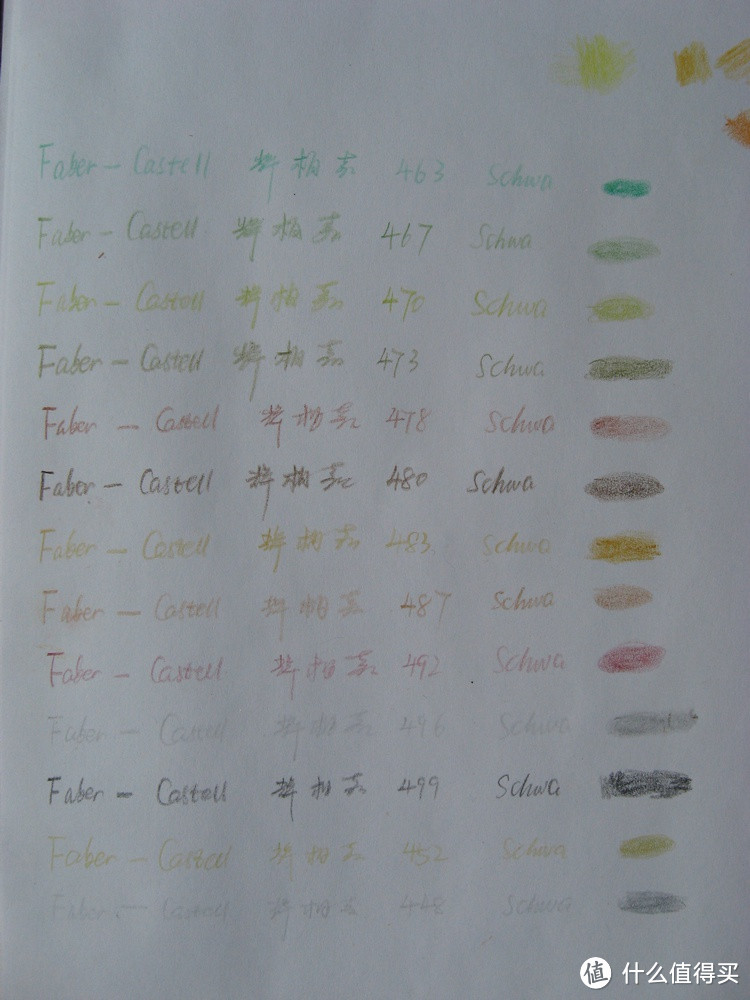 Faber - Castell 辉柏嘉 463 Schwa
Faber - Castell 辉柏嘉 467 Schwa
Faber - Castell 辉柏嘉 470 Schwa
Faber - Castell 辉柏嘉 473 Schwa
Faber - Castell 辉柏嘉 478 Schwa
Faber - Castell 辉柏嘉 480 Schwa
Faber - Castell 辉柏嘉 483 Schwa
Faber - Castell 辉柏嘉 487 Schwa
Faber - Castell 辉柏嘉 492 Schwa
Faber - Castell 辉柏嘉 496 Schwa
Faber - Castell 辉柏嘉 499 Schwa
Faber - Castell 辉柏嘉 452 Schwa
Faber - Castell 辉柏嘉 448 Schwa
值 什么值得买